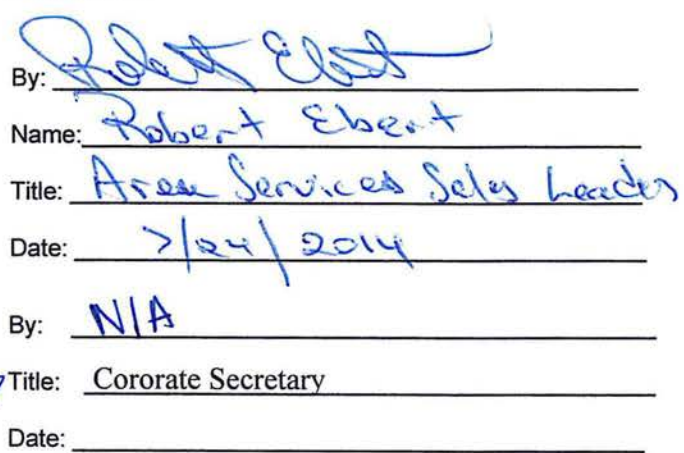 By: Robert Ebert
Name: Robert Ebert
Title: Area Services Sales Leader
Date: 7/24/2014
By: N/A
Title: Cororate Secretary
Date: